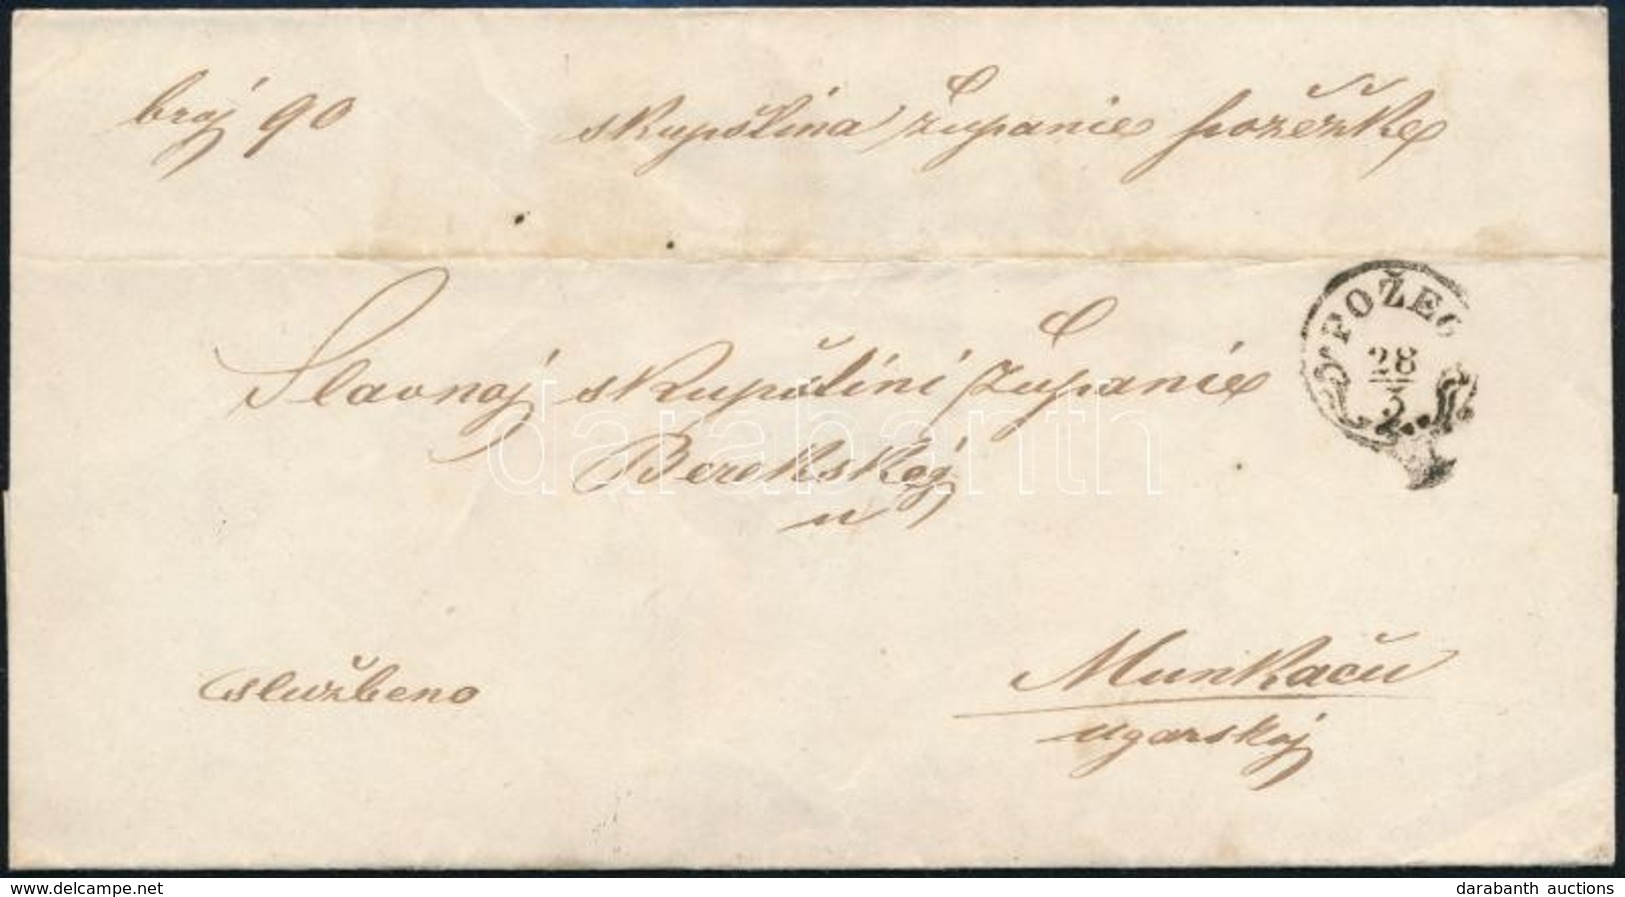 broj 90 skupština županie požežke
POŽEG
28
2
Slavnoj skupštini županie
Berekskoj
u
službeno
Munkaču
ugarskoj
darabanth
www.delcampe.net
darabanth auctions